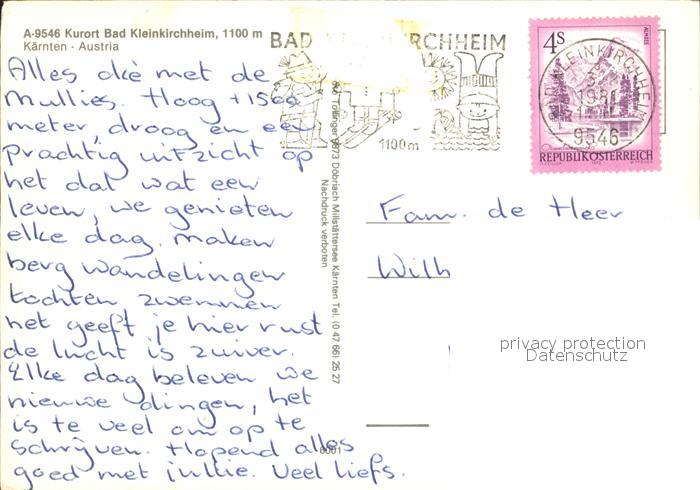 A-9546 Kurort Bad Kleinkirchheim, 1100 m
Kärnten - Austria
Alles oké met de
Mullies. Hoog +1500
meter, droog en een
prachtig uitzicht op
het dal wat een
leven, we genieten
elke dag. maken
berg wandelingen
tochten zwemmen
het geeft je hier rust
de lucht is zuiver.
Elke dag beleven we
nieuwe dingen, het
is te veel om op te
schrijven. Hopend alles
goed met jullie. Veel liefs.
Tollinger 9873 Döbriach Millstättersee Kärnten Tel. (0 47 66) 25 27
Nachdruck verboten
6001
BAD KIRCHHEIM
1100 m
4S
ALMSEE
KLEINKIRCHHE
9546
REPUBLIK ÖSTERREICH
Fam. de Heer
Wilh
privacy protection
Datenschutz